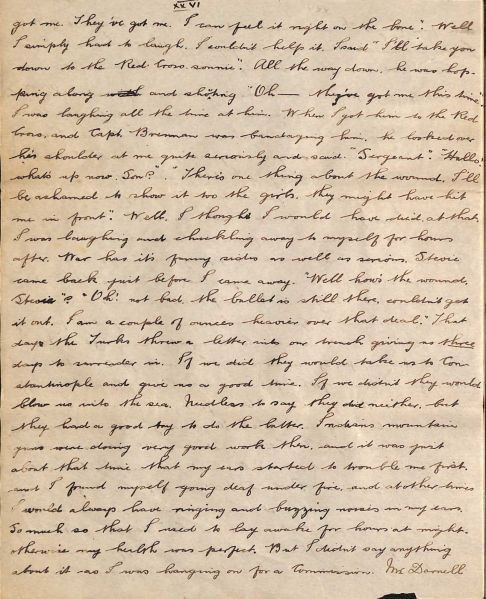 XXVI
got me. They've got me. I can feel it right on the bone". Well
I simply had to laugh. I couldn't help it. I said "I'll take you
down to the Red Cross sonnie". All the way down, he was hop-
ping along and shouting "Oh — they've got me this time"
I was laughing all the time at him. When I got him to the Red
Cross, and Capt. Brennan was bandaging him, he looked over
his shoulder at me quite seriously and said "Sergeant". "Hallo,
what's up now, Son?". "There's one thing about the wound, I'll
be ashamed to show it too the girls, they might have hit
me in front". Well, I thought I would have died, at that,
I was laughing and chuckling away to myself for hours
after. War has it's funny sides as well as serious. Stevie
came back just before I came away. "Well how's the wound,
Stevie"? "Oh! not bad, the bullet is still there, couldn't get
it out. I am a couple of ounces heavier over that deal." That
day the Turks threw a letter into our trench giving us three
days to surrender in. If we did they would take us to Con-
stantinople and give us a good time. If we didn't they would
blow us into the sea. Needless to say they did neither, but
they had a good try to do the latter. Indians mountain
guns were doing very good work then, and it was just
about that time that my ears started to trouble me first,
and I found myself going deaf under fire, and at other times
I would always have ringing and buzzing noises in my ears.
So much so that I used to lay awake for hours at night.
otherwise my health was perfect. But I didn't say anything
about it as I was hanging on for a Commission. Mr Darnell